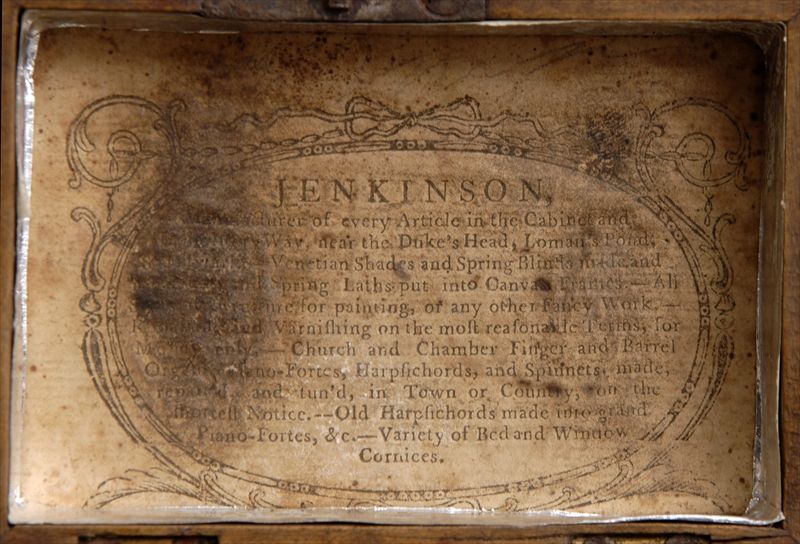 JENKINSON,
Manufacturer of every Article in the Cabinet and
Way, near the Duke's Head, Loman's Pond,
Venetian Shades and Spring Blinds made and
Spring Laths put into Canvas Frames.—All
for painting, or any other Fancy Work.—
and Varniſhing on the moſt reaſonable Terms, for
Church and Chamber Finger and Barrel
Piano-Fortes, Harpſichords, and Spinnets, made,
repaired, and tun'd, in Town or Country, on the
ſhorteſt Notice.—Old Harpſichords made into grand
Piano-Fortes, &c.—Variety of Bed and Window
Cornices.